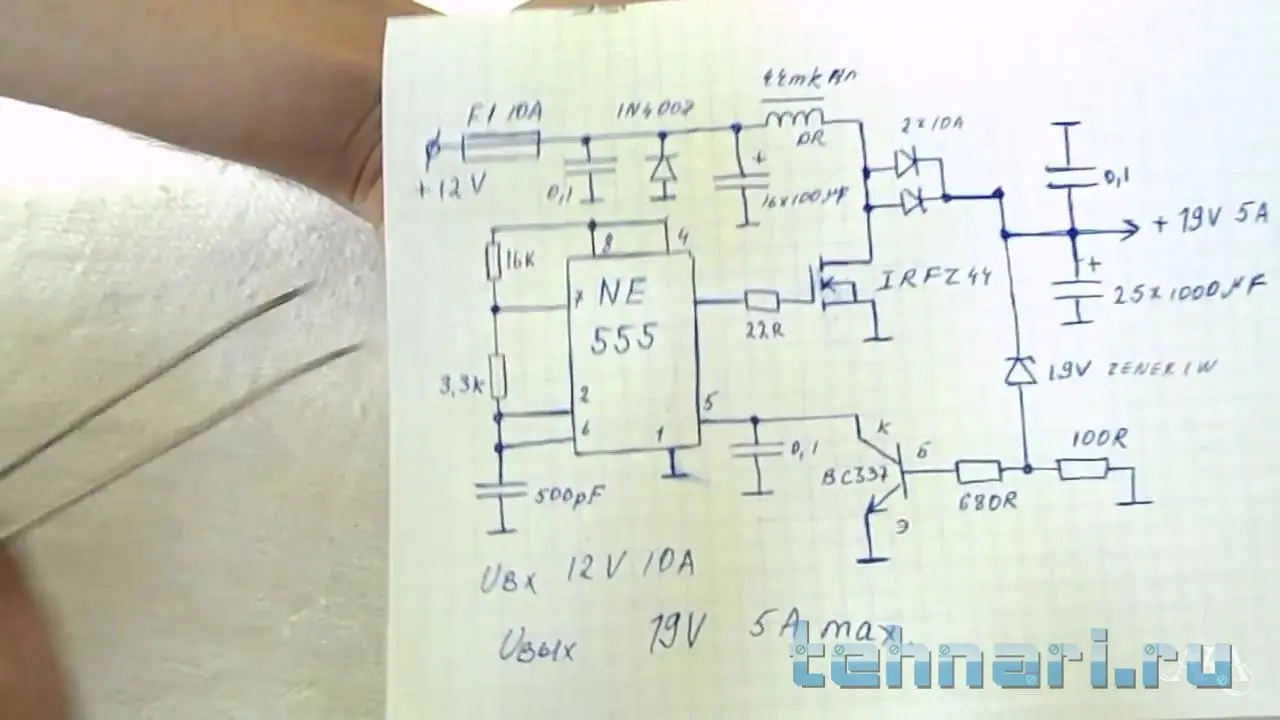 F1 10A
1N4007
2 x 10A
DR
+ 12V
0,1
+
16x100µF
0,1
+ 19V 5A
+
25x1000µF
16K
8
4
7
NE
555
22R
IRFZ44
3,3k
2
6
1
5
19V ZENER 1W
500pF
0,1
К
BC337
Б
Э
680R
100R
Uвх 12V 10A
Uвых 19V 5A max.
tehnari.ru